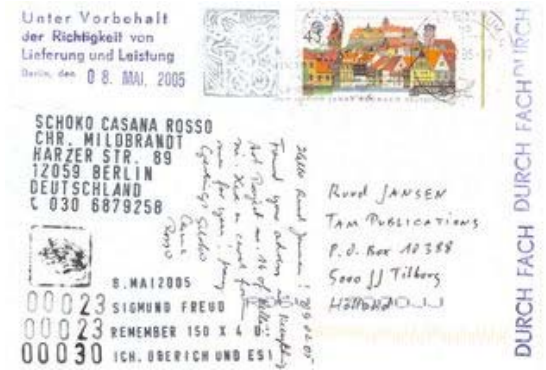 Unter Vorbehalt
der Richtigkeit von
Lieferung und Leistung
Berlin, den 08. MAI. 2005
45
SCHOKO CASANA ROSSO
CHR. MILDBRANDT
HARZER STR. 89
12059 BERLIN
DEUTSCHLAND
030 6879258
8.MAI2005
00023 SIGMUND FREUD
00023 REMEMBER 150 X 4
00030 ICH, ÜBERICH UND ES!
Hello Ruud Jansen!
Found your address
Art Project
for you! Many
Greetings Schoko
Casana
Rosso
Ruud JANSEN
TAM PUBLICATIONS
P.O. Box 10388
5000 JJ Tilburg
Holland
DURCH FACH DURCH FACH DURCH